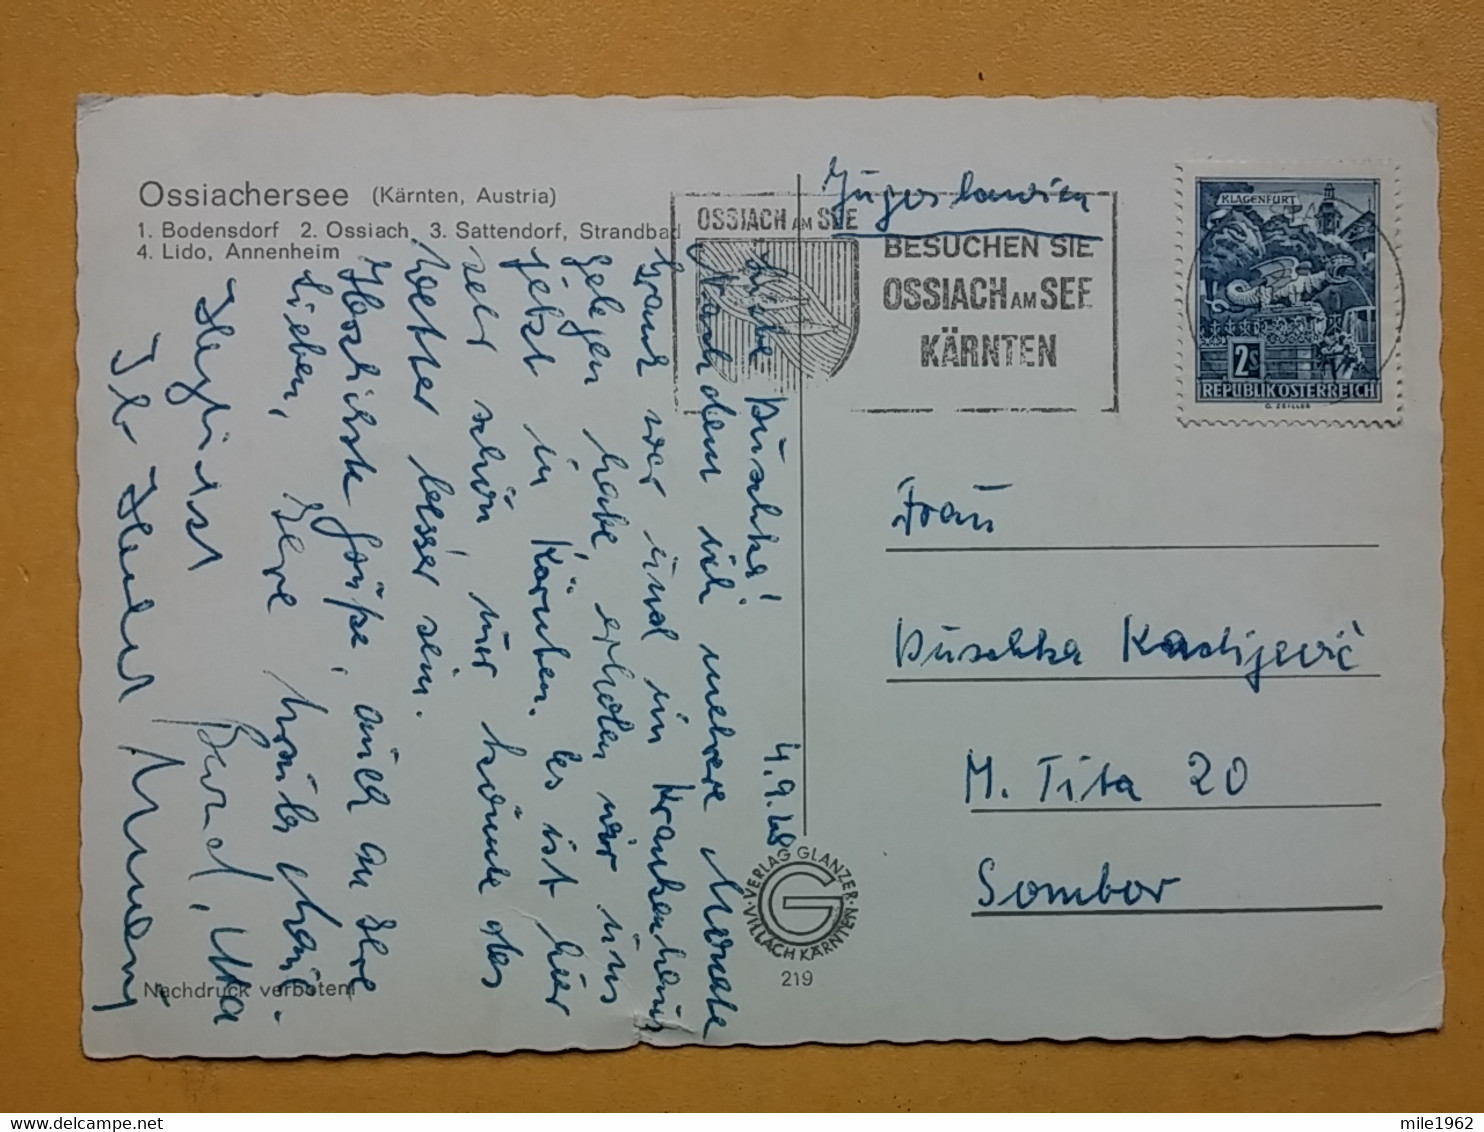 Ossiachersee (Kärnten, Austria)
1. Bodensdorf 2. Ossiach 3. Sattendorf, Strandbad
4. Lido, Annenheim
Jugoslawien
OSSIACH AM SEE
BESUCHEN SIE
OSSIACH AM SEE
KÄRNTEN
KLAGENFURT
2S
REPUBLIK OSTERREICH
G. ZEILLER
4.9.
Liebe Duschka!
Nachdem ich mehrere Monate
krank war und im Krankenhaus
gelegen habe, erholen wir uns
jetzt in Kärnten. Es ist hier
sehr schön, nur könnte das
Wetter besser sein.
Herzlichste Grüße, auch an Ihre
Lieben, Ihre
Herzlichst
Frau
Duschka Kadijević
M. Tita 20
Sombor
VERLAG GLANZER
VILLACH KÄRNTEN
G
219
Nachdruck verboten!
mile1962